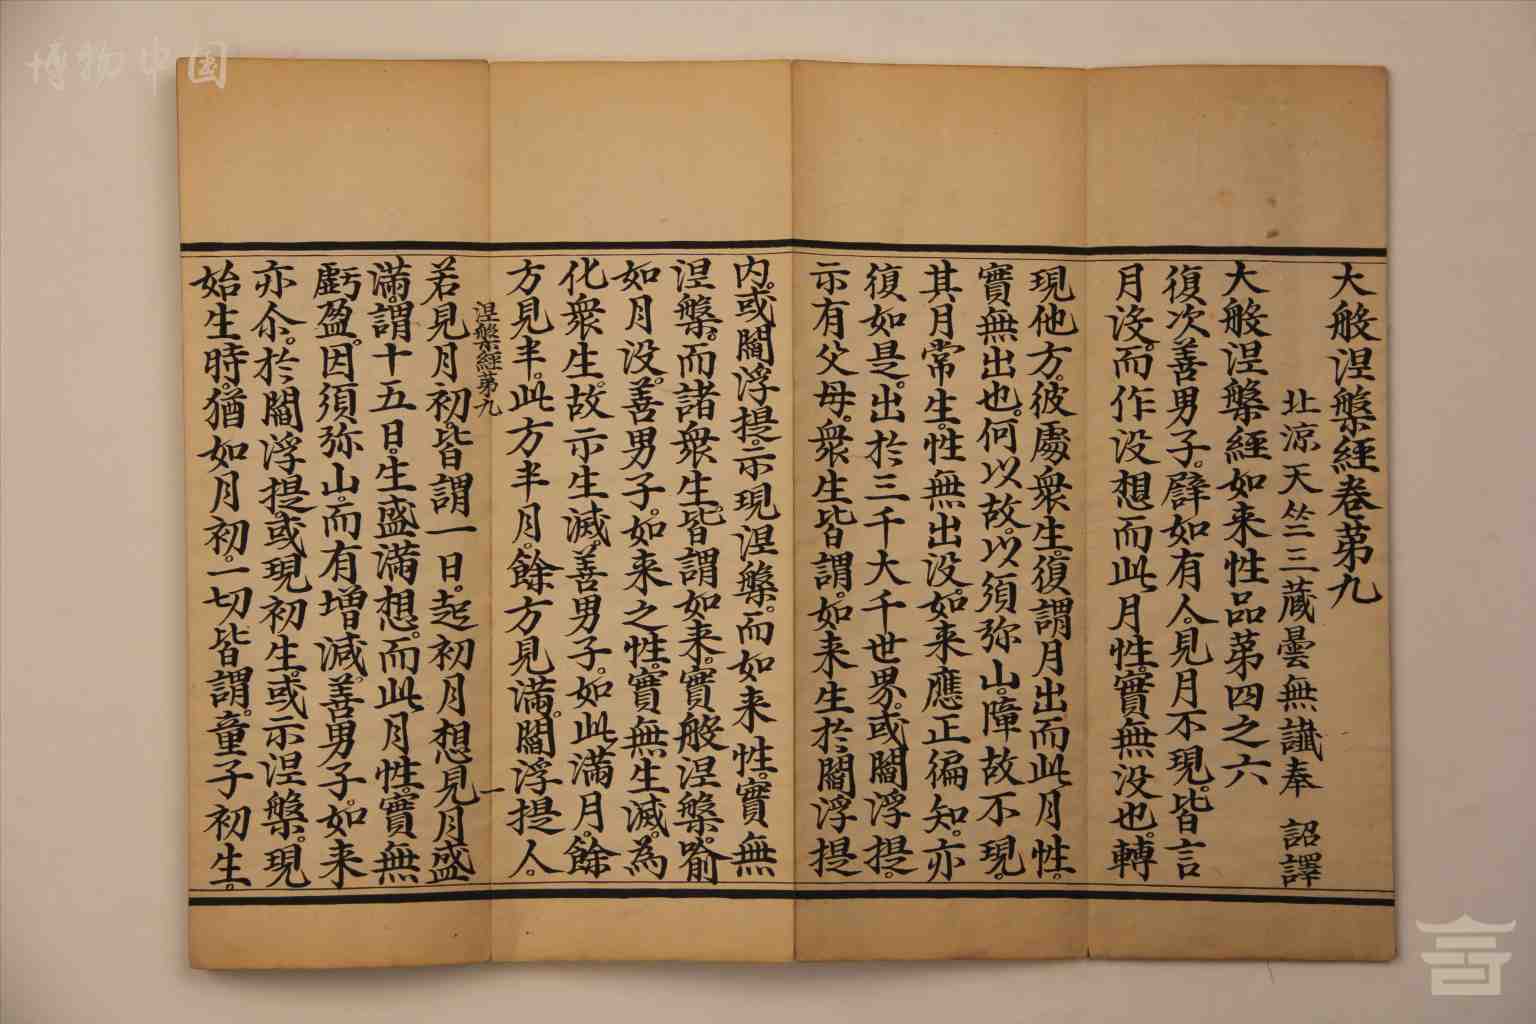 大般涅槃經卷第九
北涼天竺三藏曇無讖奉 詔譯
大般涅槃經如来性品第四之六
復次善男子。譬如有人。見月不現。皆言
月没。而作没想而此月性。實無没也。轉
現他方。彼處衆生。復謂月出而此月性。
實無出也。何以故。以須弥山。障故不現。
其月常生。性無出没。如来應正徧知。亦
復如是。出於三千大千世界。或閻浮提。
示有父母。衆生皆謂。如来生於閻浮提
内。或閻浮提。示現涅槃。而如来性。實無
涅槃。而諸衆生。皆謂如来。實般涅槃。喻
如月没。善男子。如来之性。實無生滅。為
化衆生。故示生滅。善男子。如此滿月。餘
方見半。此方半月。餘方見滿。閻浮提人。
涅槃經第九
一
若見月初。皆謂一日。起初月想見月盛
滿。謂十五日。生盛滿想。而此月性。實無
虧盈。因須弥山。而有增減。善男子。如来
亦尒。於閻浮提或現初生。或示涅槃。現
始生時。猶如月初。一切皆謂。童子初生。
博物中国